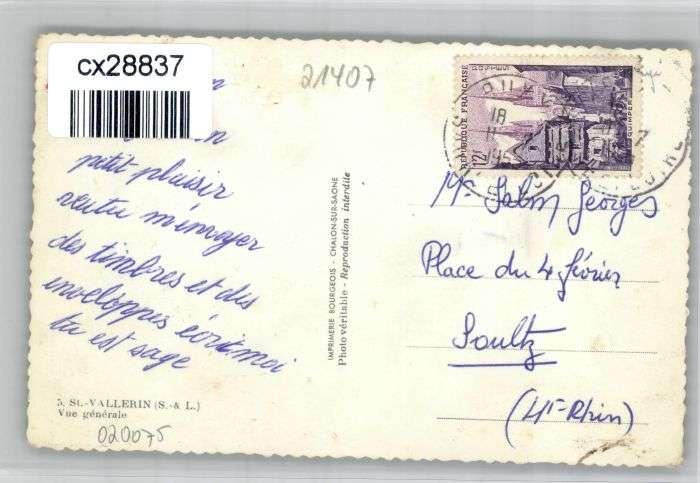 cx28837
21407
petit plaisir
veutu m'envoyer
des timbres et dis
enveloppes écrit moi
tu est sage
3. St.-VALLERIN (S.-& L.)
Vue générale
020075
IMPRIMERIE BOURGEOIS - CHALON-SUR-SAONE
Photo véritable - Reproduction interdite
REPUBLIQUE FRANÇAISE
POSTES
12F
QUIMPER
18
Mr Salm Georges
Place du 4 février
Soultz
(Ht-Rhin)